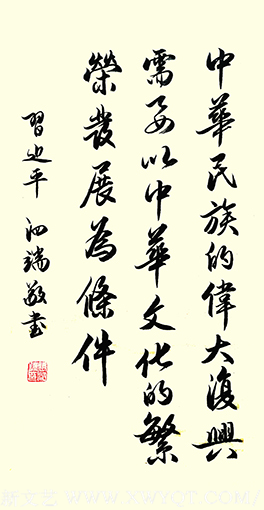 中華民族的偉大復興
需要以中華文化的繁
榮發展為條件
習近平 泗端敬書